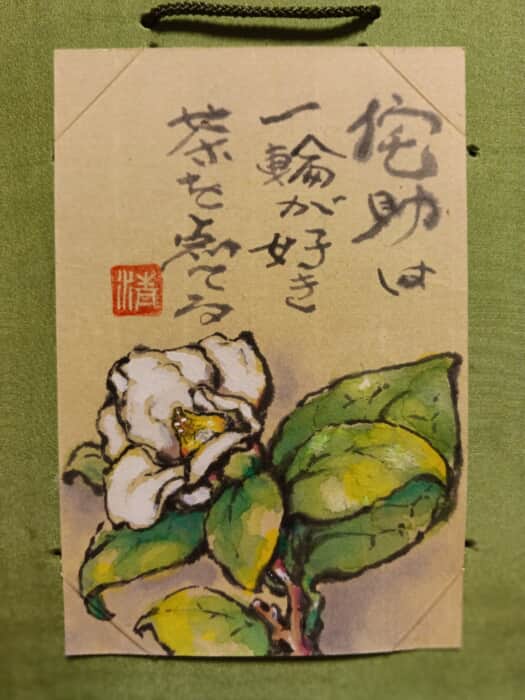 侘助は
一輪が好き
茶を点てる
清